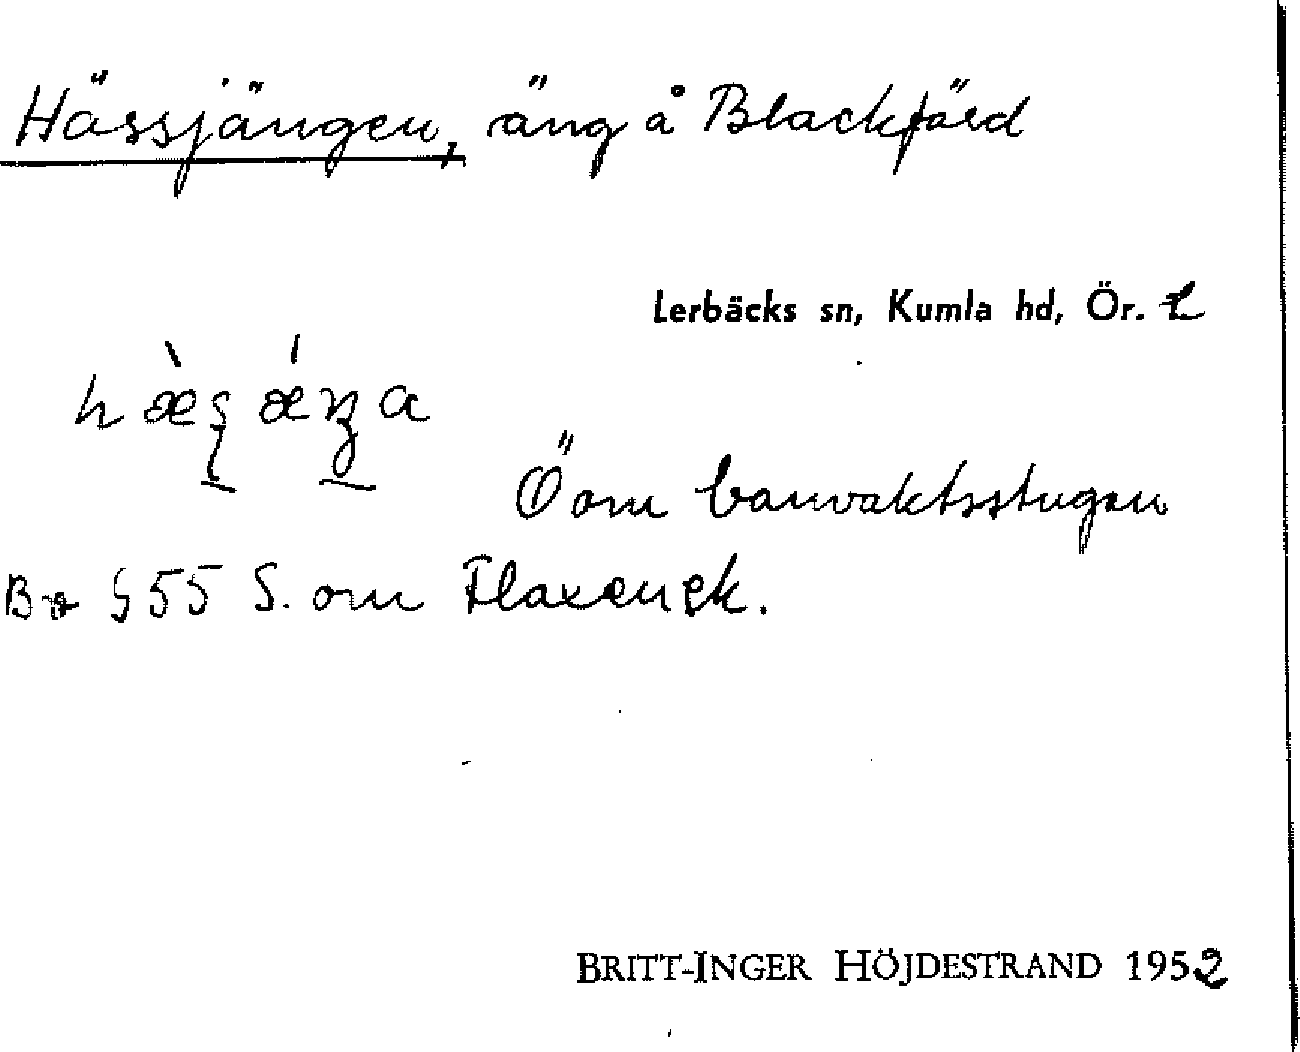 Hässjängen, äng å Blackfärd
Lerbäcks sn, Kumla hd, Ör. L
Ö om banvaktsstugan
§ 55 S. om Flaxen ek.
BRITT-INGER HÖJDESTRAND 1952